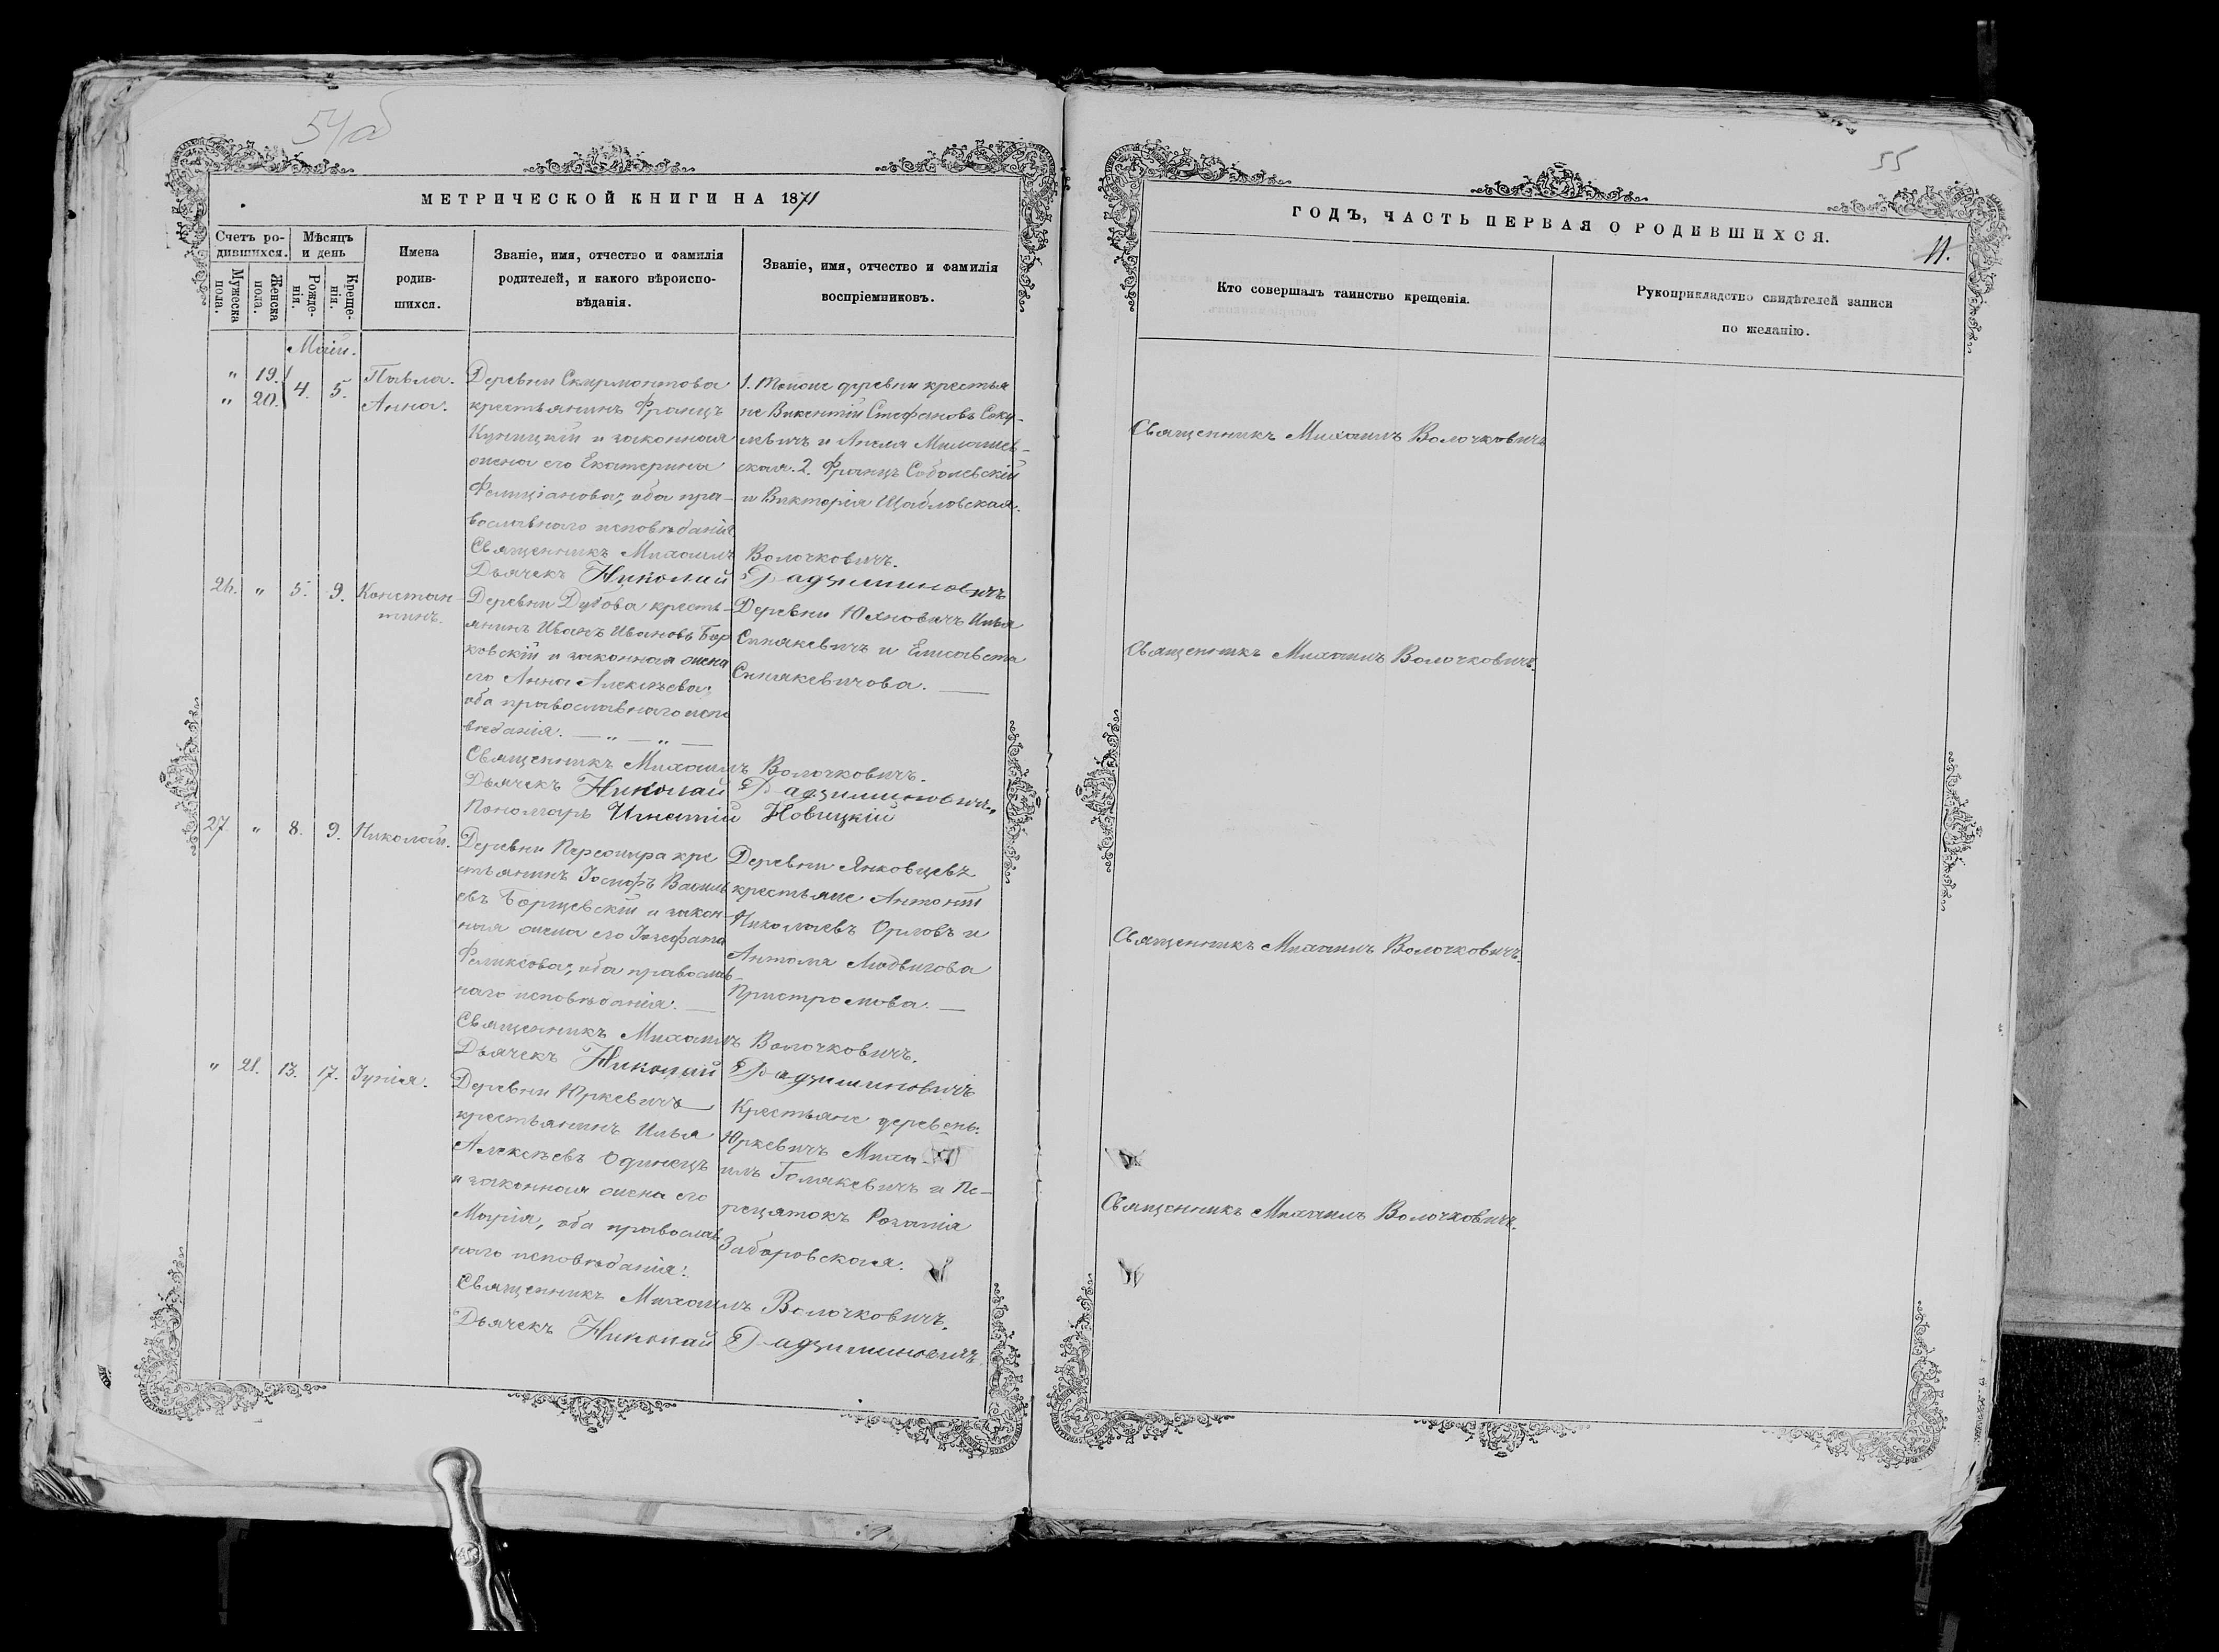 54об
МЕТРИЧЕСКОЙ КНИГИ НА 1871
Счетъ родившихся.
Мѣсяцъ и день
Мужеска пола.
Женска пола.
Рожденія.
Крещенія.
Имена родившихся.
Званіе, имя, отчество и фамилія родителей, и какого вѣроисповѣданія.
Званіе, имя, отчество и фамилія воспріемниковъ.
Маій.
" 19. 4. 5. Павла.
" 20. Анна.
Деревни Скирмонтова
крестьянинъ Францъ
Куницкій и законная
жена его Екатерина
Фелиціанова, оба пра-
вославнаго исповѣданія
1. Тойже деревни крестья
не Викентій Стефановъ Саку-
левичъ и Анеля Милашев-
ская. 2. Францъ Соболевскій
и Викторія Щабловская.
Священникъ Михаилъ Волочковичъ.
Дьячекъ Николай Радзиминовичъ
26. " 5. 9. Констан-
тинъ.
Деревни Дубова кресть-
янинъ Иванъ Ивановъ Бор
ковскій и законная жена
его Анна Алексѣева,
оба православнаго испо
вѣданія. — " — " —
Деревни Юхновичъ Илья
Синякевичъ и Елисавета
Синякевичова. —
Священникъ Михаилъ Волочковичъ.
Дьячекъ Николай Радзиминовичъ.
Пономарь Игнатій Новицкій
27. " 8. 9. Николай.
Деревни Пережира кре
стьянинъ Іосифъ Василь
евъ Борщевскій и закон-
ная жена его Іозефата
Феликсова, оба православ-
наго исповѣданія. —
Деревни Янковцевъ
крестьяне Антоній
Николаевъ Орловъ и
Антоля Людвигова
Пристромова. —
Священникъ Михаилъ Волочковичъ.
Дьячекъ Николай Радзиминовичъ
" 21. 13. 17. Іунія.
Деревни Юркевичъ
крестьянинъ Илья
Алексѣевъ Одинецъ
и законная жена его
Марія, оба православ
наго исповѣданія.
Крестьяне деревень:
Юркевичъ Миха-
илъ Голякевичъ и Пе-
рецятокъ Розалія
Заборовская.
Священникъ Михаилъ Волочковичъ.
Дьячекъ Николай Радзиминовичъ.
55
ГОДЪ, ЧАСТЬ ПЕРВАЯ О РОДИВШИХСЯ.
11.
Кто совершалъ таинство крещенія.
Рукоприкладство свидѣтелей записи
по желанію.
Священникъ Михаилъ Волочковичъ
Священникъ Михаилъ Волочковичъ.
Священникъ Михаилъ Волочковичъ.
Священникъ Михаилъ Волочковичъ.